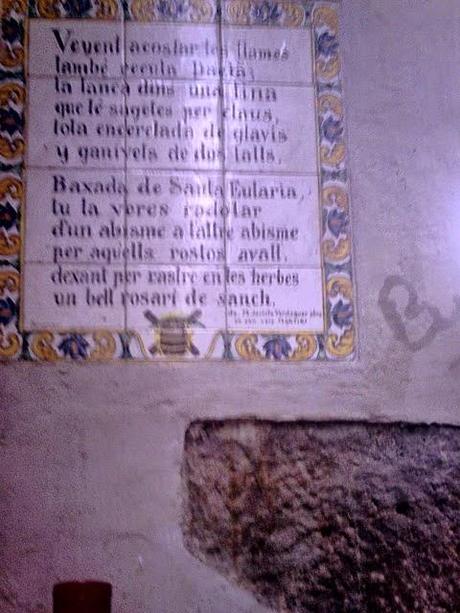 Veyent acostar les flames
també recula Dacià;
la lança dins una tina
que té sagetes per claus,
tota encerclada de glavis
y ganivets de dos talls.
Baxada de Santa Eularia,
tu la veres rodolar
d'un abisme a l'altre abisme
per aquells rostos avall,
dexant per rastre en les herbes
un bell rosari de sanch.
M. Jacinto Verdaguer
Bu